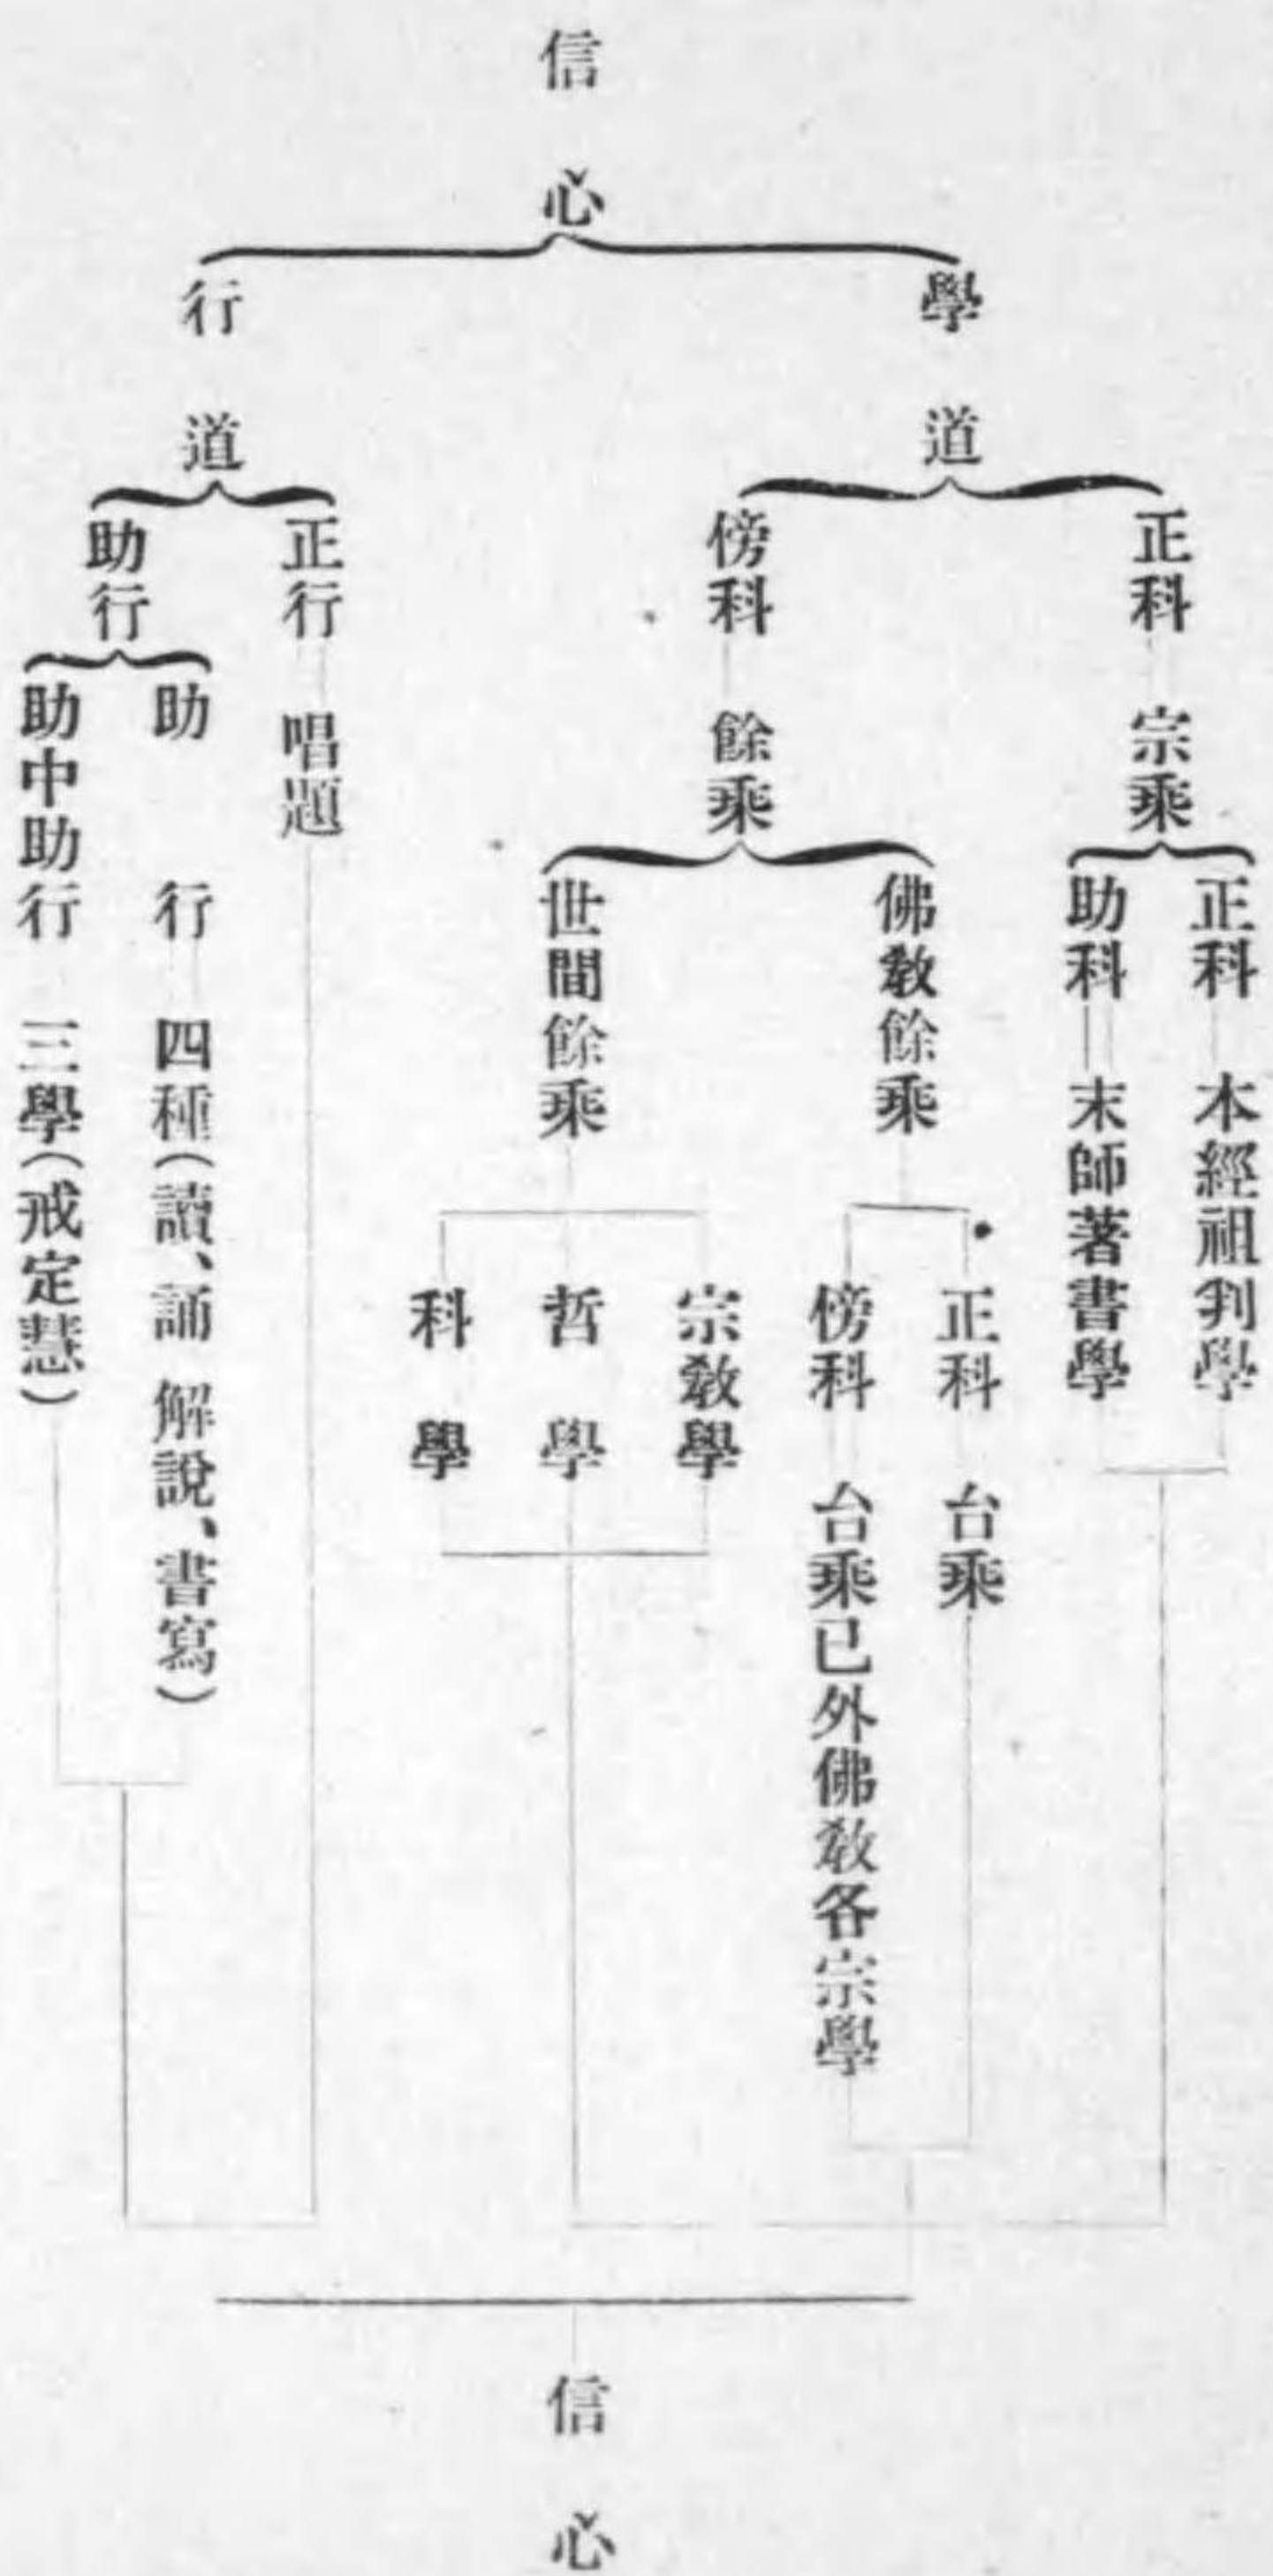 信心
學道
正科 宗乘
正科 本經祖判學
助科 末師著書學
傍科 餘乘
佛教餘乘
正科 台乘
傍科 台乘已外佛教各宗學
世間餘乘
宗教學
哲學
科學
行道
正行 唱題
助行
助行 四種(讀、誦 解說、書寫)
助中助行 三學(戒定慧)
信心